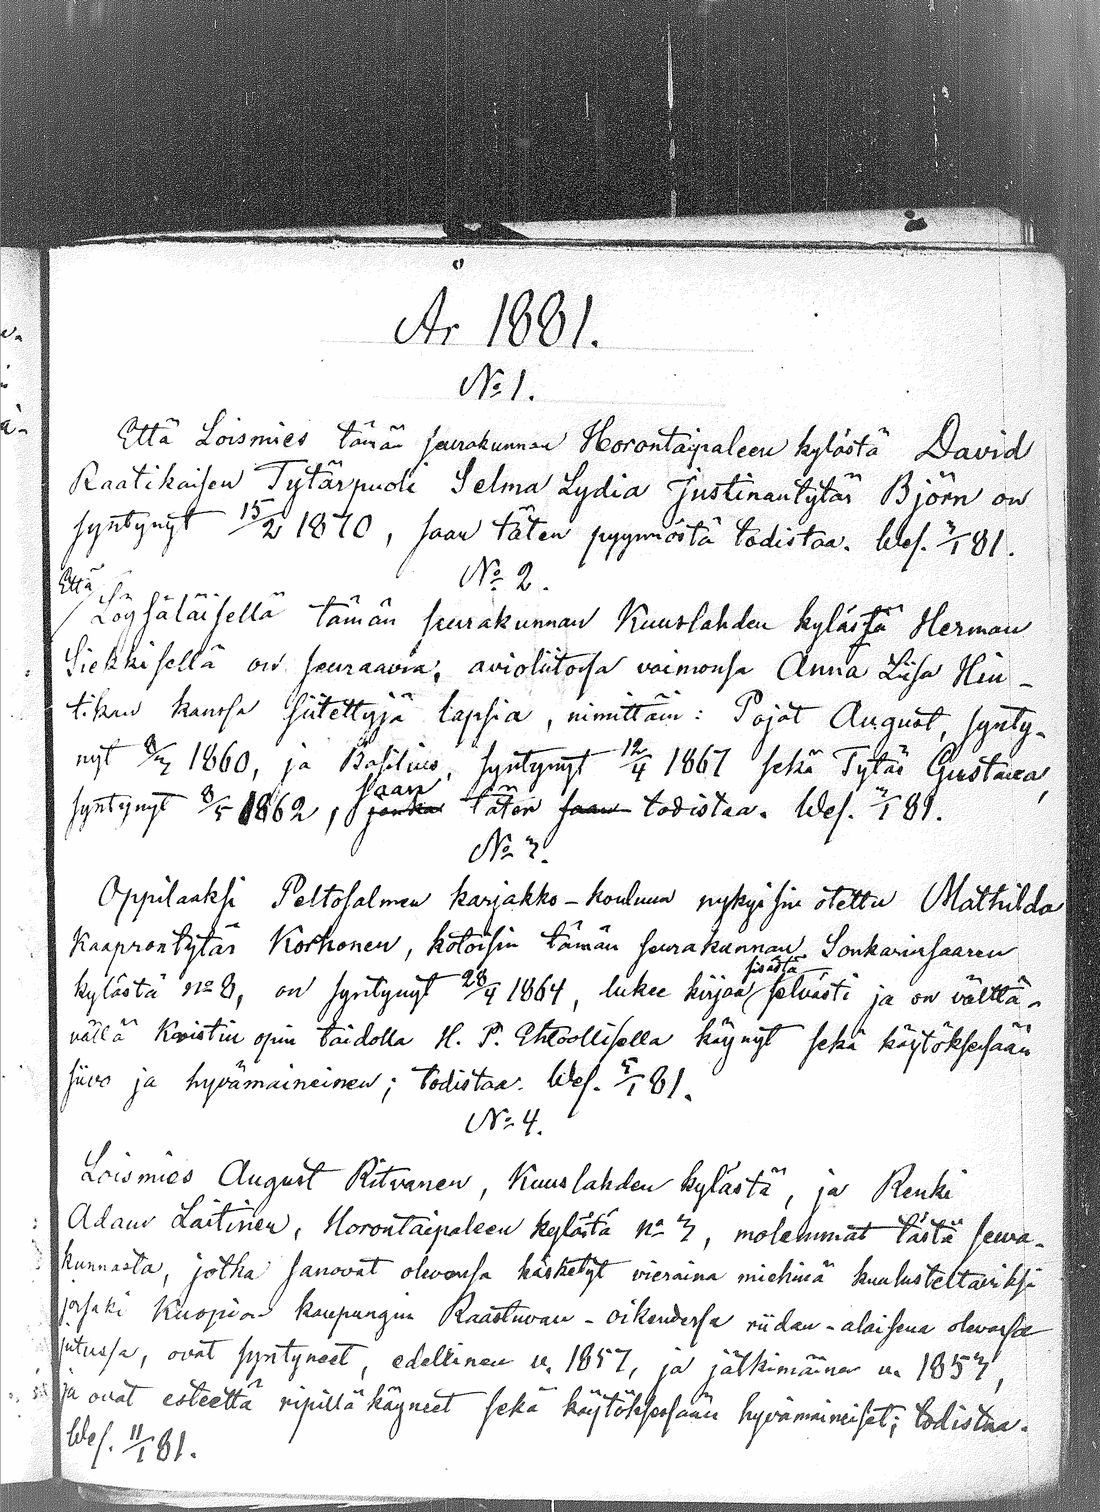 År 1881.
No 1.
Että Loismies tämän seurakunnan Horontaipaleen kylästä David
Raatikaisen Tytärpuoli Selma Lydia Justinantytär Björn on
syntynyt 15/2 1870, saan täten pyynnöstä todistaa. Wes. 3/1 81.
No 2.
Että Löysäläisellä tämän seurakunnan Kuuslahden kylästä Herman
Siekkisellä on seuraavia, avioliitossa vaimonsa Anna Liisa Hin-
tikan kanssa siitettyjä lapsia, nimittäin: Pojat August, synty-
nyt 8/3 1860, ja Basilius, syntynyt 12/4 1867 sekä Tytär Gustava,
syntynyt 8/5 1862, jonka saan täten saan todistaa. Wes. 3/1 81.
No 3.
Oppilaaksi Peltosalmen karjakko-kouluun nykyisin otettu Mathilda
Kaaprontytär Korhonen, kotoisin tämän seurakunnan Sonkarinsaaren
kylästä no 8, on syntynyt 28/4 1864, lukee kirjaa sisältä selvästi ja on välttä-
vällä Kristin opin taidolla H. P. Ehtoollisella käynyt sekä käytöksessään
siivo ja hyvämaineinen; todistaa. Wes. 5/1 81.
No 4.
Loismies August Ritvanen, Kuuslahden kylästä, ja Renki
Adam Laitinen, Horontaipaleen kylästä no 3, molemmat tästä seura-
kunnasta, jotka sanovat olevansa käsketyt vieraina miehinä kuulusteltaviksi
jossaki Kuopion kaupungin Raastuvan-oikeudessa riidan-alaisena olevassa
jutussa, ovat syntyneet, edellinen v. 1857, ja jälkimäinen v. 1853,
ja ovat esteettä ripillä käyneet sekä käytöksessään hyvämaineiset; todistaa.
Wes. 11/1 81.